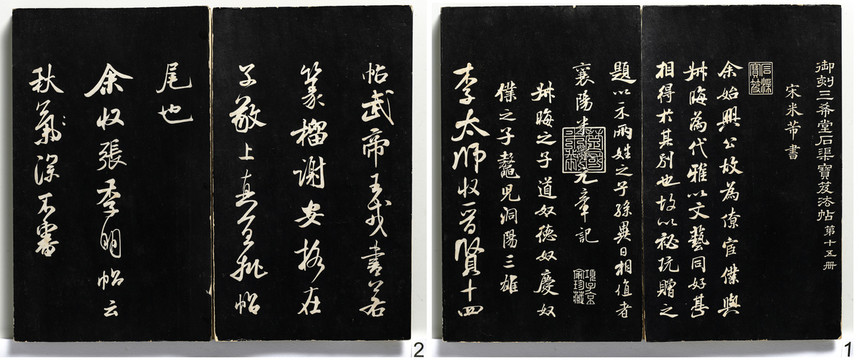 御刻三希堂石渠寶笈法帖 第十五冊
宋米芾書
石渠寶笈
余始興公故為僚官僕與
叔晦為代雅以文藝同好甚
相得於其別也故以秘玩贈之
題以示兩姓之子孫異日相值者
襄陽米元章記
叔晦之子道奴德奴慶奴
僕之子鼇兒洞陽三雄
項子京家珍藏
李太師收晉賢十四
1
帖武帝王戎書若
篆籀謝安格在
子敬上真宜批帖
尾也
余收張季明帖云
秋氣深不審
2